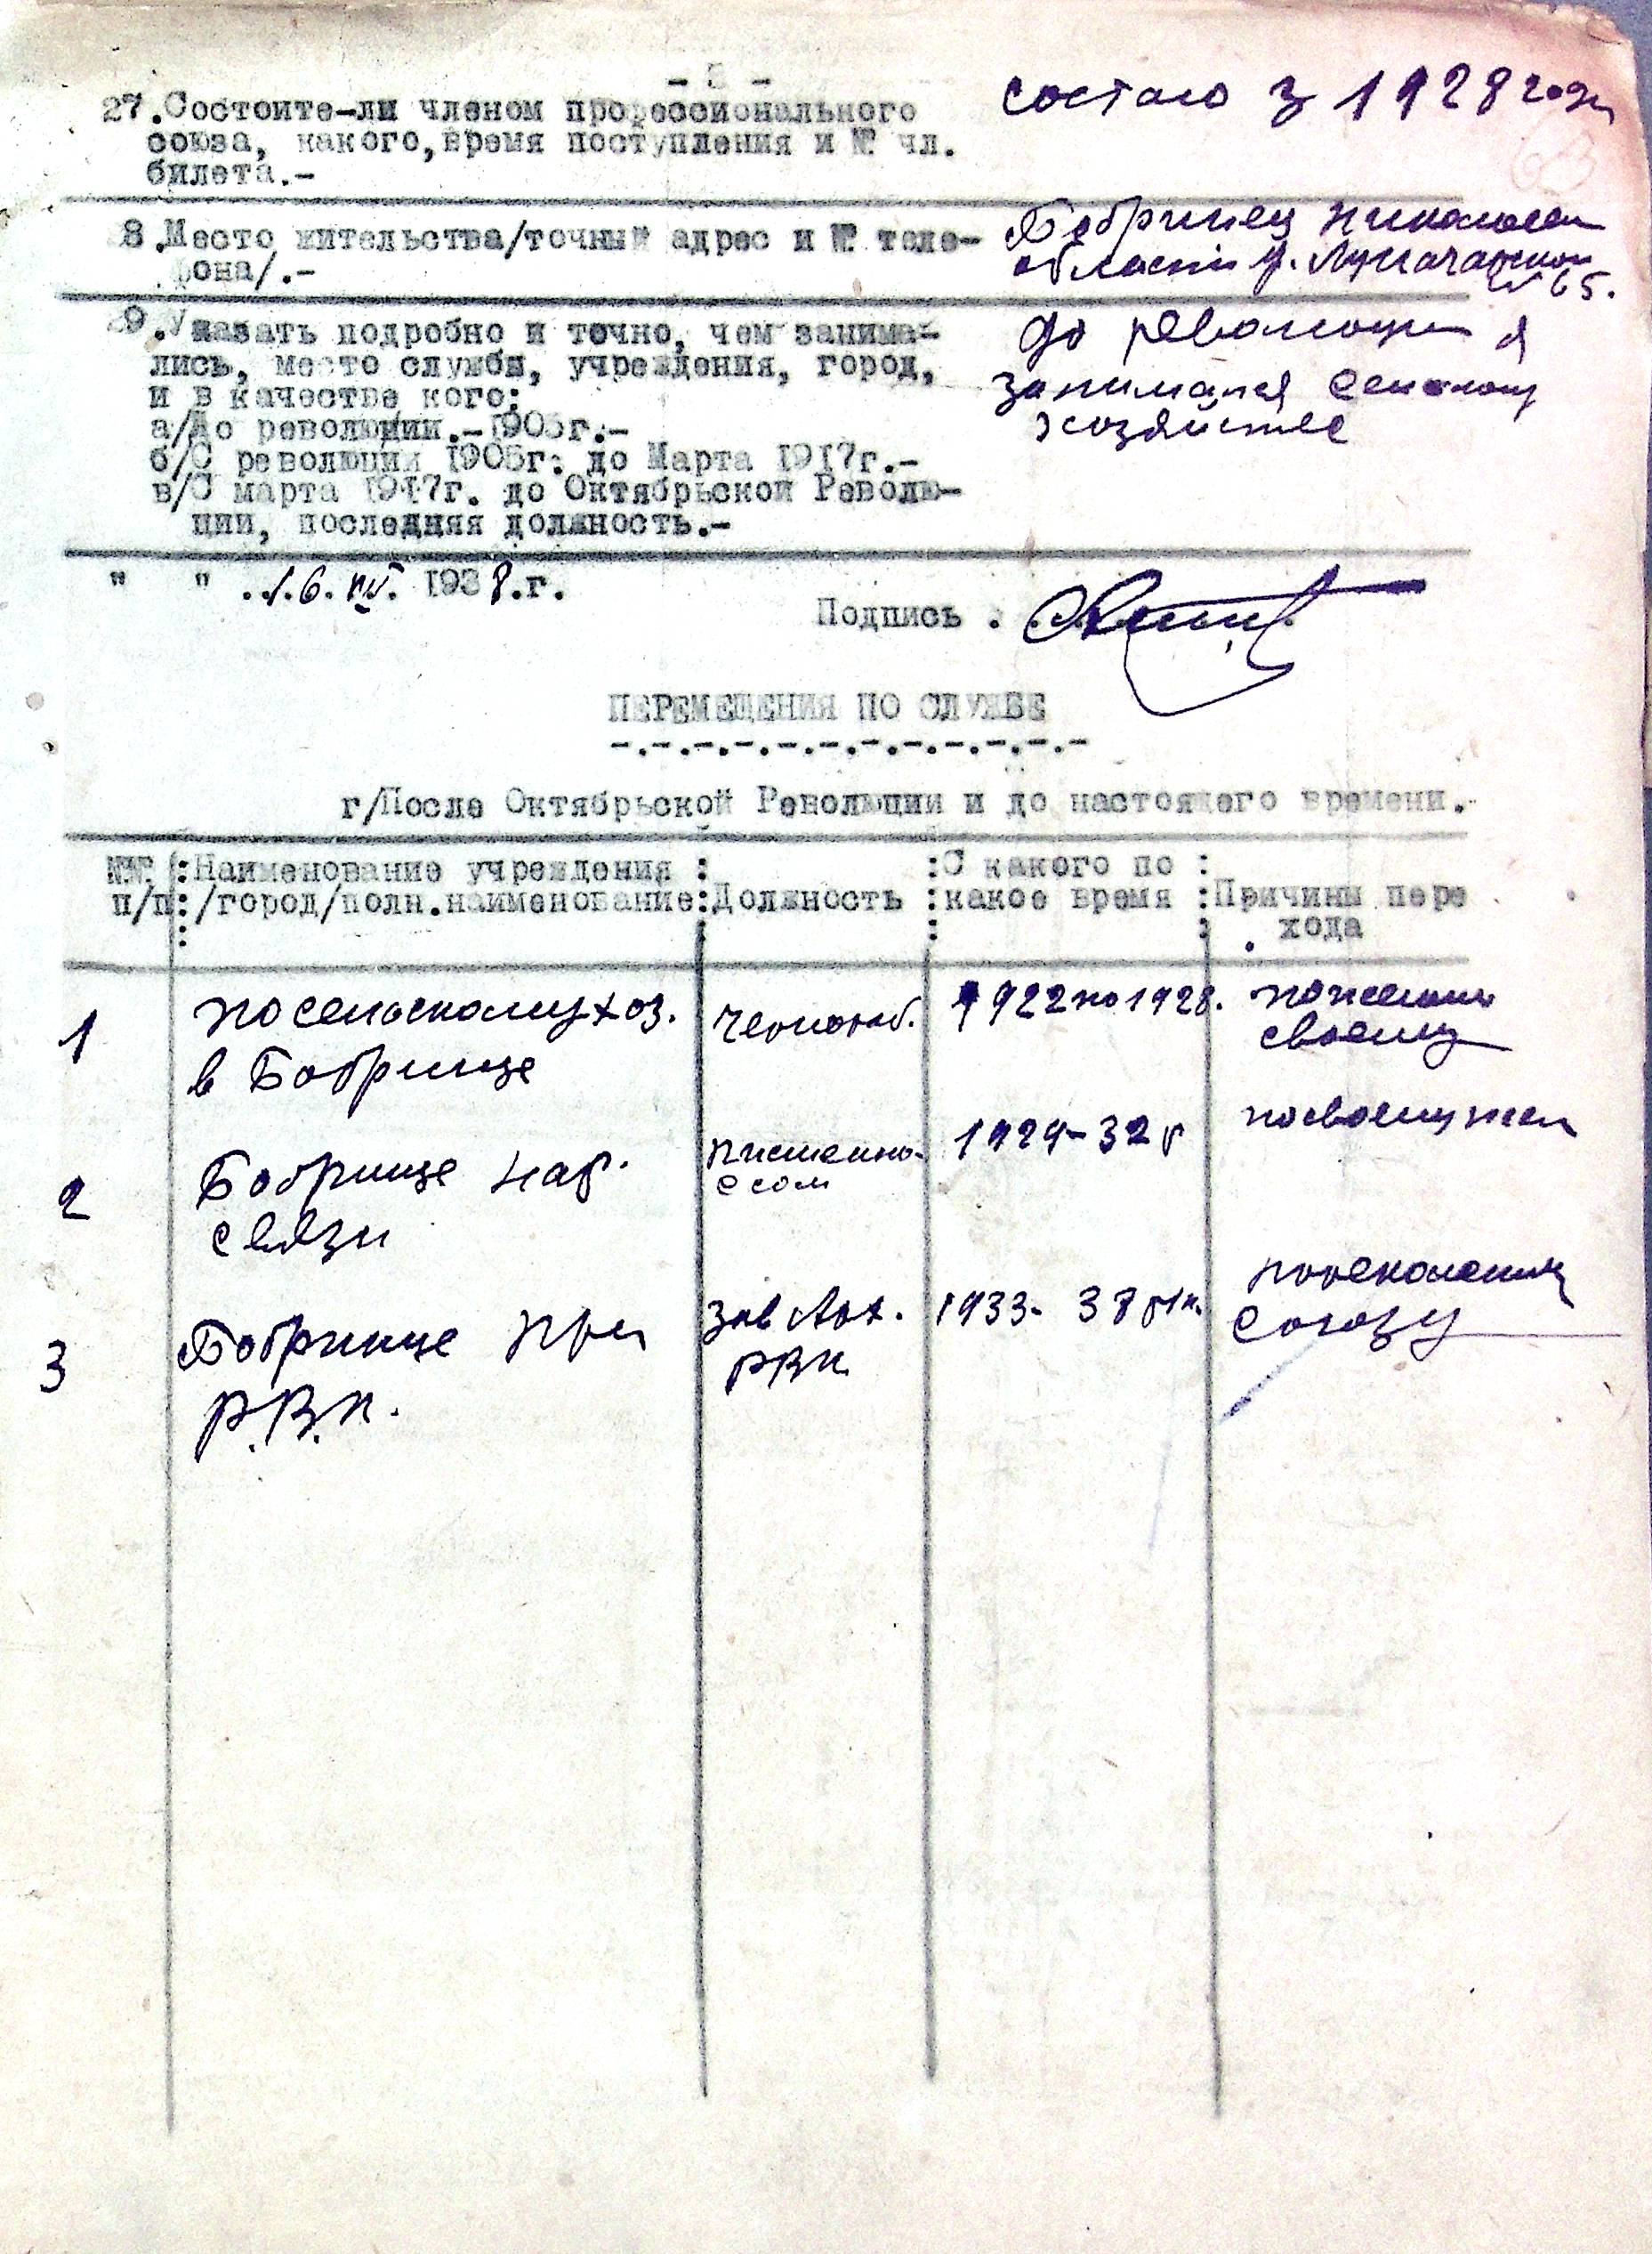 - 5 -
27.Состоите-ли членом профессионального
союза, какого,время поступления и № чл.
билета.-
состаю з 1928 года
63
8.Место жительства/точный адрес и № теле-
фона/.-
Бобринец Николаев
области у. Луначарской
№ 65.
29.Указать подробно и точно, чем занима-
лись, место службы, учреждения, город,
и в качестве кого:
а/До революции.-1905г.-
б/С революции 1905г. до Марта 1917г.-
в/С марта 1917г. до Октябрьской Револю-
ции, последняя должность.-
до революции я
занимался
хозяйстве
" " .16. IV. 1938.г.
Подпись .
ПЕРЕМЕЩЕНИЯ ПО СЛУЖБЕ
г/После Октябрьской Революции и до настоящего времени.-
№№ п/п
Наименование учреждения
/город/полн.наименование
Должность
С какого по
какое время
Причины пере
хода
1
по селоскому хоз.
в Бобринце
чернораб.
1922 по 1928.
по желанию
своему
2
Бобринце
связи
письмено-
сом
1929-32 г
по своему жел
3
Бобринце при
Р.В.К.
зав
РВК
1933- 38
союзу